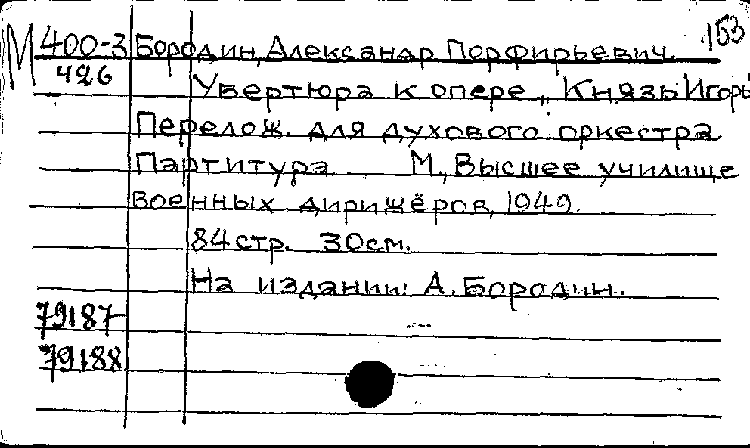 153
М 400-3 Бородин, Александр Порфирьевич.
426
Увертюра к опере „Князь Игорь
Перелож. для духового оркестра
Партитура М., Высшее училище
военных дирижёров, 1949.
84 стр. 30 см.
На издании: А. Бородин.
79187
79188